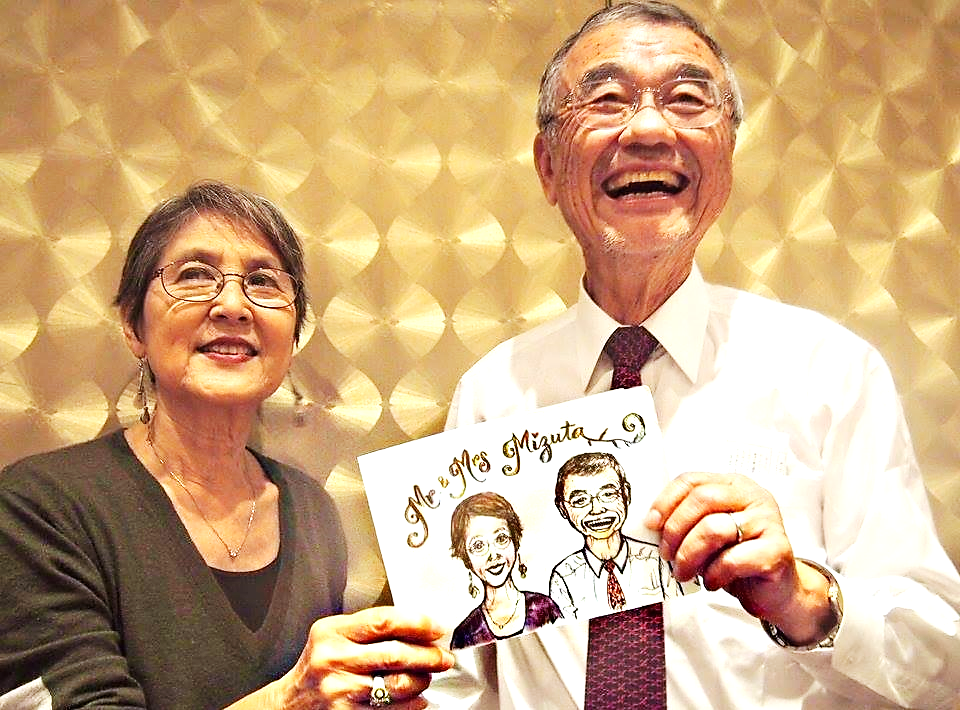 Mr & Mrs Mizuta